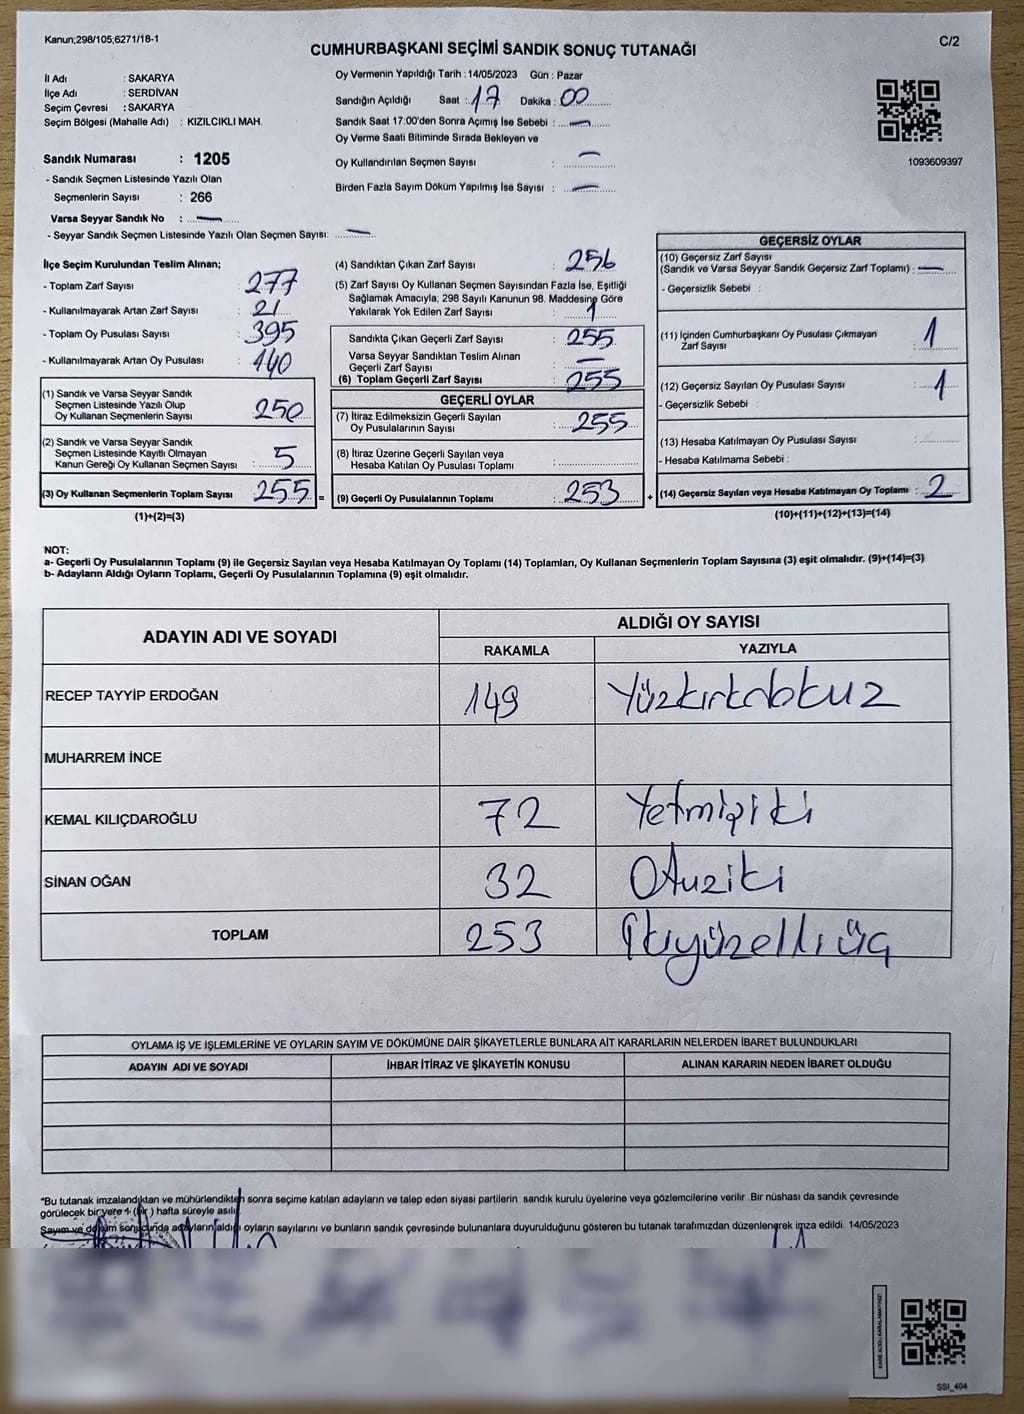 Kanun;298/105;6271/18-1
C/2
CUMHURBAŞKANI SEÇİMİ SANDIK SONUÇ TUTANAĞI
İl Adı : SAKARYA
İlçe Adı : SERDİVAN
Seçim Çevresi : SAKARYA
Seçim Bölgesi (Mahalle Adı) : KIZILCIKLI MAH.
Sandık Numarası : 1205
- Sandık Seçmen Listesinde Yazılı Olan
Seçmenlerin Sayısı : 266
Varsa Seyyar Sandık No : —
- Seyyar Sandık Seçmen Listesinde Yazılı Olan Seçmen Sayısı: —
Oy Vermenin Yapıldığı Tarih : 14/05/2023 Gün : Pazar
Sandığın Açıldığı Saat : 17 Dakika : 00
Sandık Saat 17:00'den Sonra Açımış İse Sebebi : —
Oy Verme Saati Bitiminde Sırada Bekleyen ve
Oy Kullandırılan Seçmen Sayısı : —
Birden Fazla Sayım Döküm Yapılmış İse Sayısı : —
1093609397
İlçe Seçim Kurulundan Teslim Alınan;
- Toplam Zarf Sayısı : 277
- Kullanılmayarak Artan Zarf Sayısı : 21
- Toplam Oy Pusulası Sayısı : 395
- Kullanılmayarak Artan Oy Pusulası : 140
(1) Sandık ve Varsa Seyyar Sandık
Seçmen Listesinde Yazılı Olup
Oy Kullanan Seçmenlerin Sayısı : 250
(2) Sandık ve Varsa Seyyar Sandık
Seçmen Listesinde Kayıtlı Olmayan
Kanun Gereği Oy Kullanan Seçmen Sayısı : 5
(3) Oy Kullanan Seçmenlerin Toplam Sayısı 255 =
(1)+(2)=(3)
(4) Sandıktan Çıkan Zarf Sayısı : 256
(5) Zarf Sayısı Oy Kullanan Seçmen Sayısından Fazla İse, Eşitliği
Sağlamak Amacıyla, 298 Sayılı Kanunun 98. Maddesine Göre
Yakılarak Yok Edilen Zarf Sayısı : 1
Sandıkta Çıkan Geçerli Zarf Sayısı : 255
Varsa Seyyar Sandıktan Teslim Alınan
Geçerli Zarf Sayısı : —
(6) Toplam Geçerli Zarf Sayısı : 255
GEÇERLİ OYLAR
(7) İtiraz Edilmeksizin Geçerli Sayılan
Oy Pusulalarının Sayısı : 255
(8) İtiraz Üzerine Geçerli Sayılan veya
Hesaba Katılan Oy Pusulası Toplamı :
(9) Geçerli Oy Pusulalarının Toplamı : 253 +
GEÇERSİZ OYLAR
(10) Geçersiz Zarf Sayısı
(Sandık ve Varsa Seyyar Sandık Geçersiz Zarf Toplamı) : —
- Geçersizlik Sebebi :
(11) İçinden Cumhurbaşkanı Oy Pusulası Çıkmayan
Zarf Sayısı : 1
(12) Geçersiz Sayılan Oy Pusulası Sayısı : 1
- Geçersizlik Sebebi :
(13) Hesaba Katılmayan Oy Pusulası Sayısı :
- Hesaba Katılmama Sebebi :
(14) Geçersiz Sayılan veya Hesaba Katılmayan Oy Toplamı : 2
(10)+(11)+(12)+(13)=(14)
NOT:
a- Geçerli Oy Pusulalarının Toplamı (9) ile Geçersiz Sayılan veya Hesaba Katılmayan Oy Toplamı (14) Toplamları, Oy Kullanan Seçmenlerin Toplam Sayısına (3) eşit olmalıdır. (9)+(14)=(3)
b- Adayların Aldığı Oyların Toplamı, Geçerli Oy Pusulalarının Toplamına (9) eşit olmalıdır.
ADAYIN ADI VE SOYADI ALDIĞI OY SAYISI
RAKAMLA YAZIYLA
RECEP TAYYİP ERDOĞAN 149 Yüzkırkdokuz
MUHARREM İNCE
KEMAL KILIÇDAROĞLU 72 Yetmişiki
SİNAN OĞAN 32 Otuziki
TOPLAM 253 İkiyüzelliüç
OYLAMA İŞ VE İŞLEMLERİNE VE OYLARIN SAYIM VE DÖKÜMÜNE DAİR ŞİKAYETLERLE BUNLARA AİT KARARLARIN NELERDEN İBARET BULUNDUKLARI
ADAYIN ADI VE SOYADI İHBAR İTİRAZ VE ŞİKAYETİN KONUSU ALINAN KARARIN NEDEN İBARET OLDUĞU
*Bu tutanak imzalandıktan ve mühürlendikten sonra seçime katılan adayların ve talep eden siyasi partilerin sandık kurulu üyelerine veya gözlemcilerine verilir .Bir nüshası da sandık çevresinde
görülecek bir yere 1 (Bir) hafta süreyle asılır.
Sayım ve döküm sonucunda adayların aldığı oyların sayılarını ve bunların sandık çevresinde bulunanlara duyurulduğunu gösteren bu tutanak tarafımızdan düzenlenerek imza edildi. 14/05/2023
KARE KODU KARALAMAYINIZ!
SSI_404